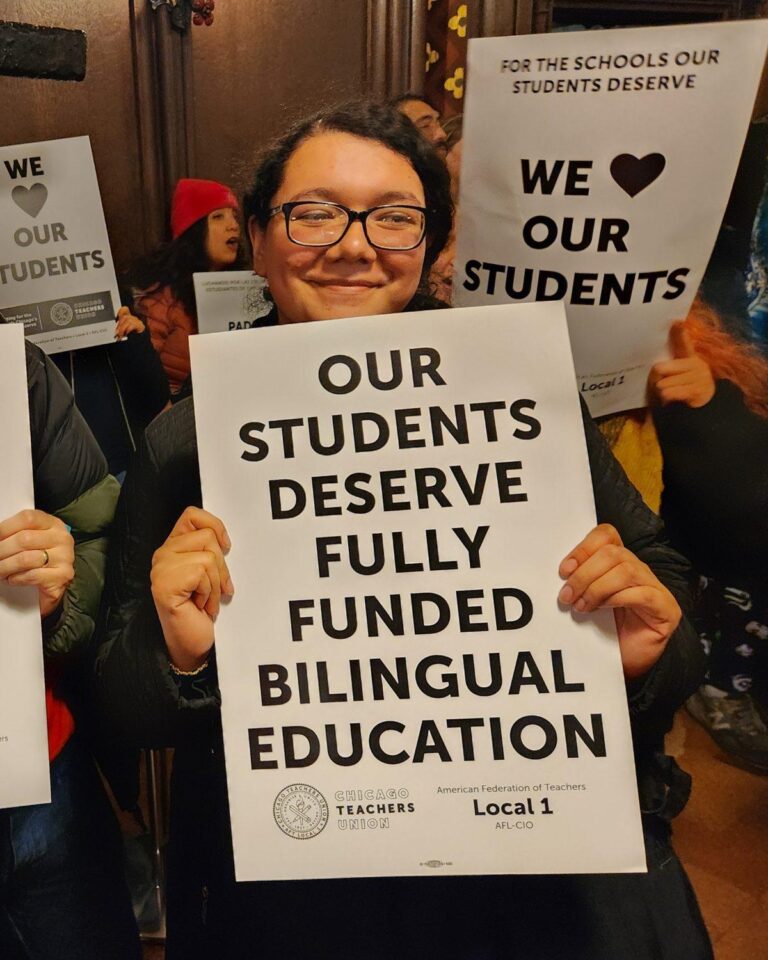 WE
OUR
TUDENTS
CHICAGO
TEACHERS
UNION
FOR THE SCHOOLS OUR
STUDENTS DESERVE
WE
OUR
STUDENTS
Local 1
OUR
STUDENTS
DESERVE
FULLY
FUNDED
BILINGUAL
EDUCATION
CHICAGO TEACHERS UNION
CHICAGO
TEACHERS
UNION
American Federation of Teachers
Local 1
AFL-CIO